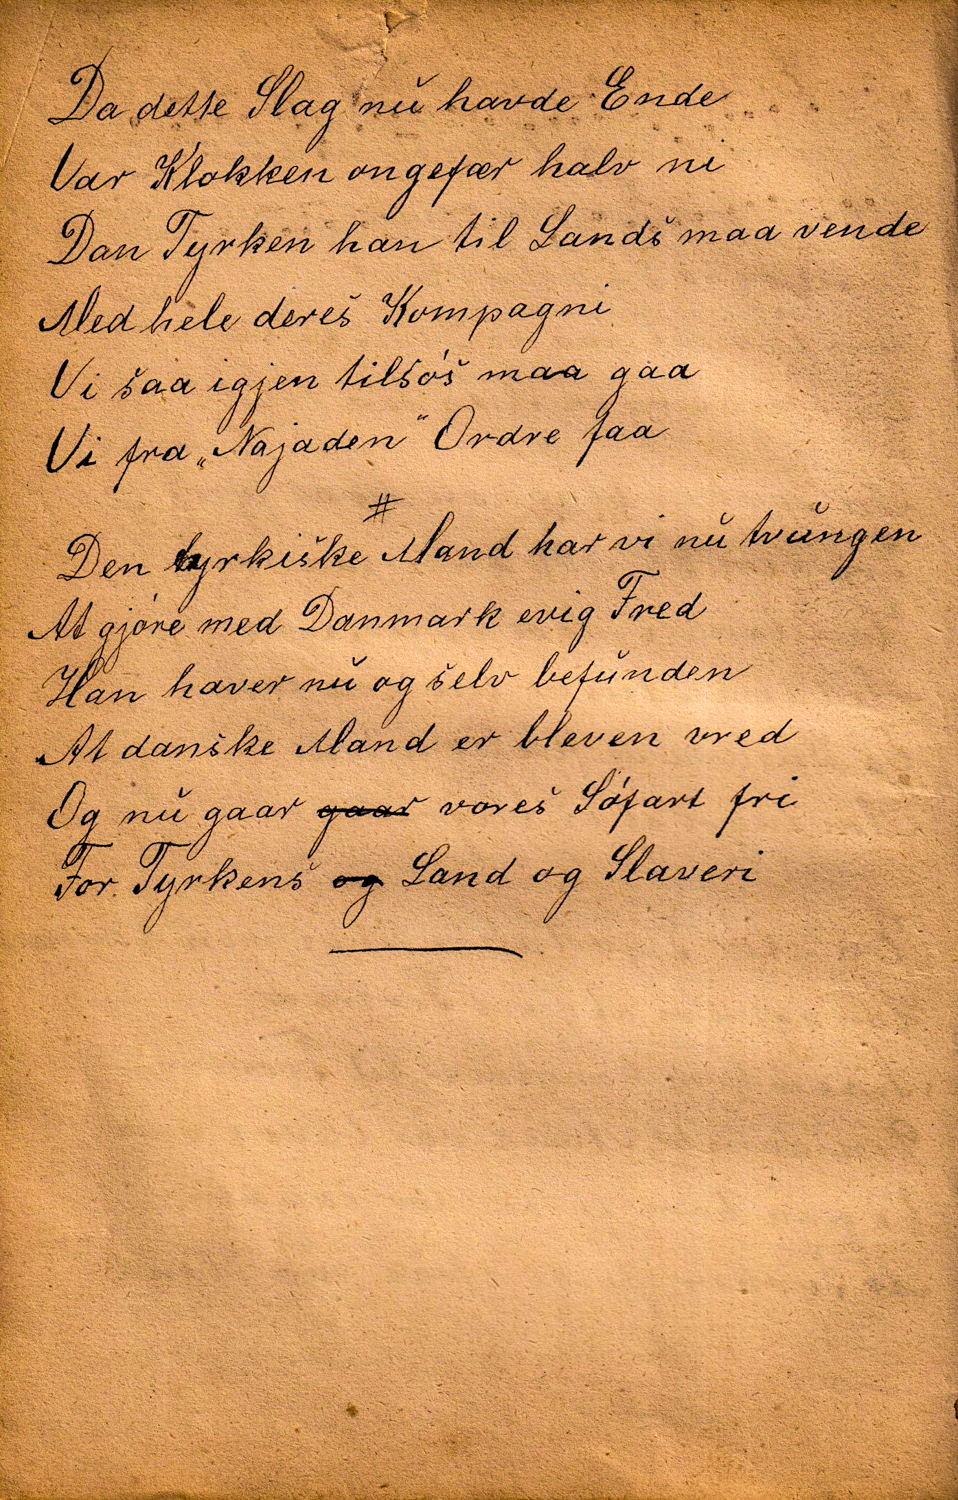 Da dette Slag nu havde Ende
Var Klokken ongefær halv ni
Dan Tyrken han til Lands maa vende
Med hele deres Kompagni
Vi saa igjen tilsøs maa gaa
Vi fra „Najaden“ Ordre faa
#
Den tyrkiske Mand har vi nu tvungen
At gjøre med Danmark evig Fred
Han haver nu og selv befunden
At danske Mand er bleven vred
Og nu gaar gaar vores Søfart fri
For Tyrkens og Land og Slaveri